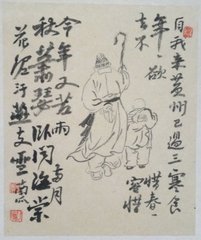 自我来黄州已過三寒食
年〻欲
惜春〻
去不
容惜
今年又苦雨両月
秋蕭瑟卧聞海棠
花泥汙燕支雪